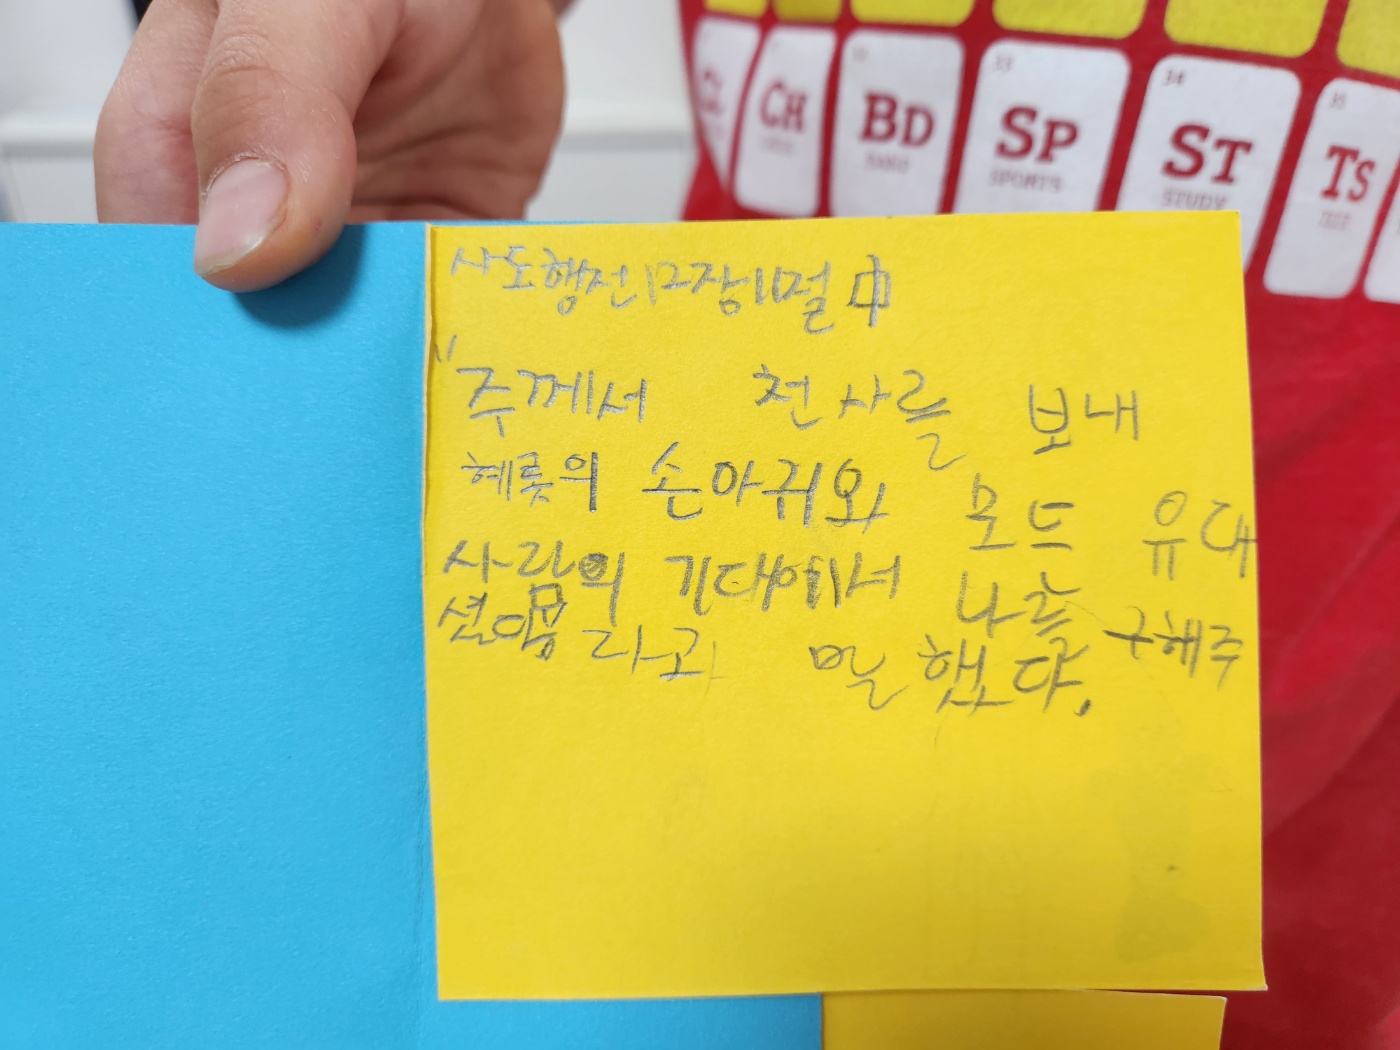 CH
BD
33
SP
SPORTS
34
ST
STUDY
35
TS
사도행전 12장 11절 中
"주께서 천사를 보내
헤롯의 손아귀와 모든 유대
사람의 기대에서 나를 구해주
셨음 라고 말했다.